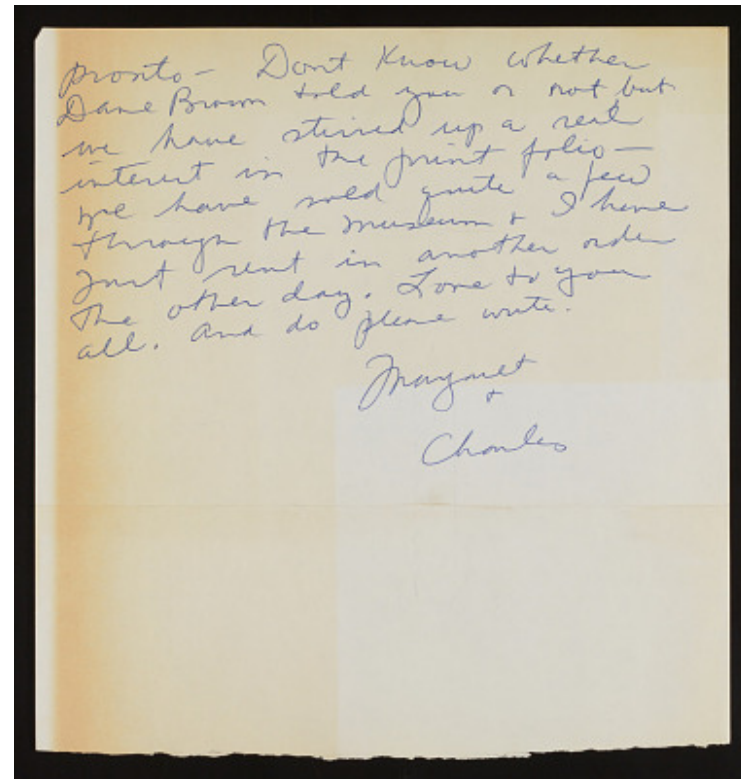 pronto – Dont Know whether
Dave Brown told you or not, but
we have stirred up a real
interest in the print folio –
We have sold quite a few
through the museum + I have
just sent in another order
the other day. Love to you
all. And do please write.
Margaret
+
Charles